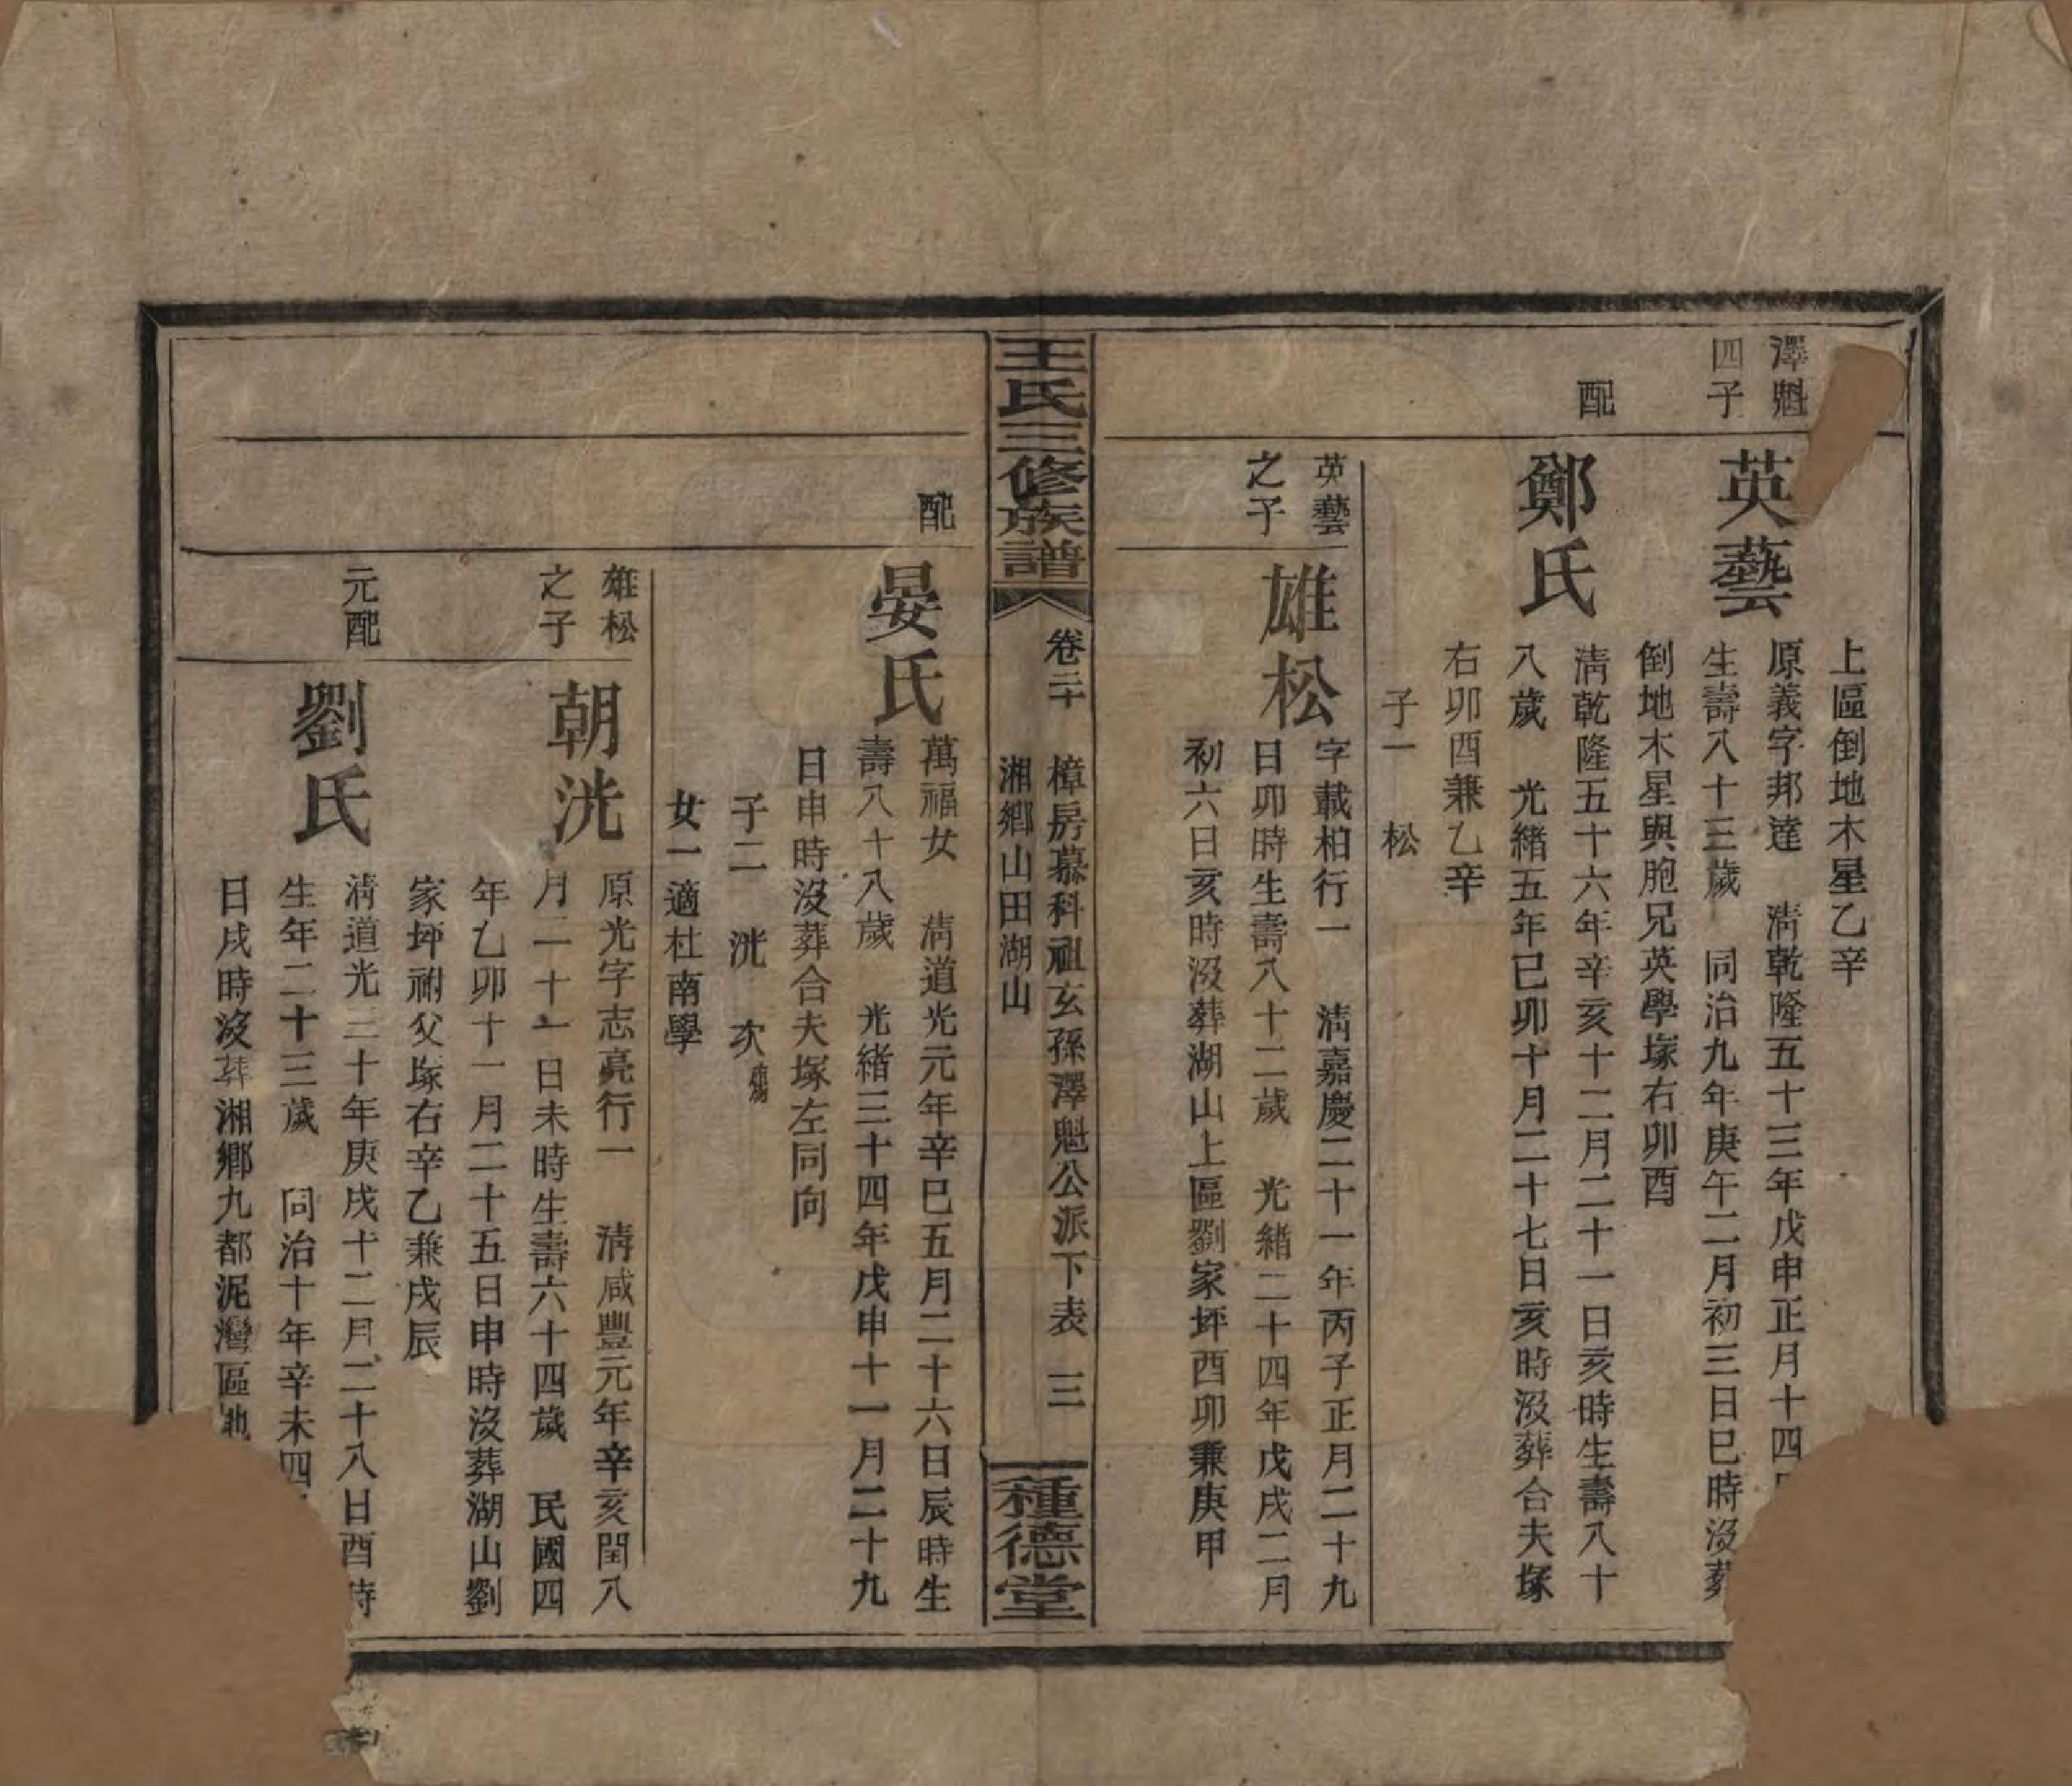 上區倒地木星乙辛
澤魁
四子
英藝
原義字邦達　清乾隆五十三年戊申正月十四
生壽八十三歲　同治九年庚午二月初三日巳時沒葬
倒地木星與胞兄英學塚右卯酉
配
鄭氏
清乾隆五十六年辛亥十二月二十一日亥時生壽八十
八歲　光緒五年己卯十月二十七日亥時沒葬合夫塚
右卯酉兼乙辛
子一　松
英藝
之子
雄松
字載柏行一　清嘉慶二十一年丙子正月二十九
日卯時生壽八十二歲　光緒二十四年戊戌二月
初六日亥時沒葬湖山上區劉家坪酉卯兼庚甲
王氏三修族譜
卷二十　樟房慕科祖玄孫澤魁公派下表　三
湘鄉山田湖山
種德堂
配
晏氏
萬福女　清道光元年辛巳五月二十六日辰時生
壽八十八歲　光緒三十四年戊申十一月二十九
日申時沒葬合夫塚左同向
子二　洸　次
女一適杜南學
雄松
之子
朝洸
原光字志亮行一　清咸豐元年辛亥閏八
月二十一日未時生壽六十四歲　民國四
年乙卯十一月二十五日申時沒葬湖山劉
家坪祔父塚右辛乙兼戌辰
元配
劉氏
清道光三十年庚戌十二月二十八日酉時
生年二十三歲　同治十年辛未四
日戌時沒葬湘鄉九都泥灣區地